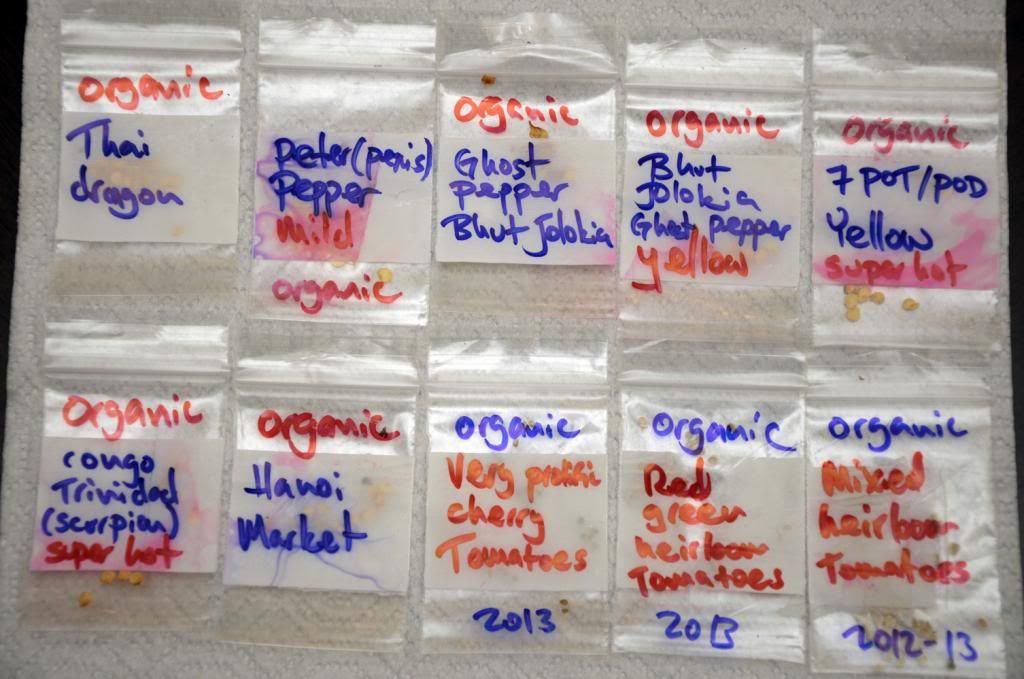 organic
Thai
dragon
Peter (penis)
Pepper
Mild
organic
organic
Ghost
pepper
Bhut Jolokia
organic
Bhut
Jolokia
Ghost pepper
yellow
organic
7 POT/POD
Yellow
super hot
organic
congo
Trinidad
(scorpian)
super hot
organic
Hanoi
Market
organic
Very prolific
cherry
Tomatoes
2013
organic
Red
green
heirloom
Tomatoes
2013
organic
Mixed
heirloom
Tomatoes
2012-13